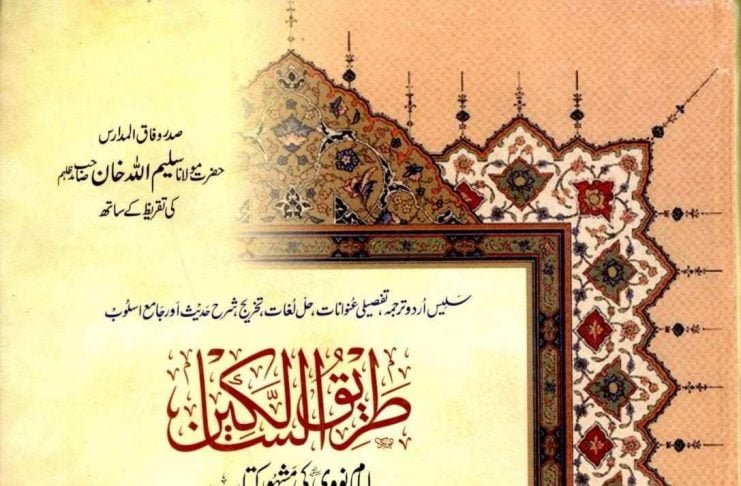 صدر وفاق المدارس
حضرت مولانا سلیم اللہ خان صاحب مدظلہم
کی تقریظ کے ساتھ
سَلیس اُردو ترجمہ، تفصیلی عُنوانات، حلِ لُغات، تخریج، شرحِ حَدیث اَور جَامع اسلُوب
طَرِيقُ السَّالِكِين
امام نووی کی مشہور کتاب